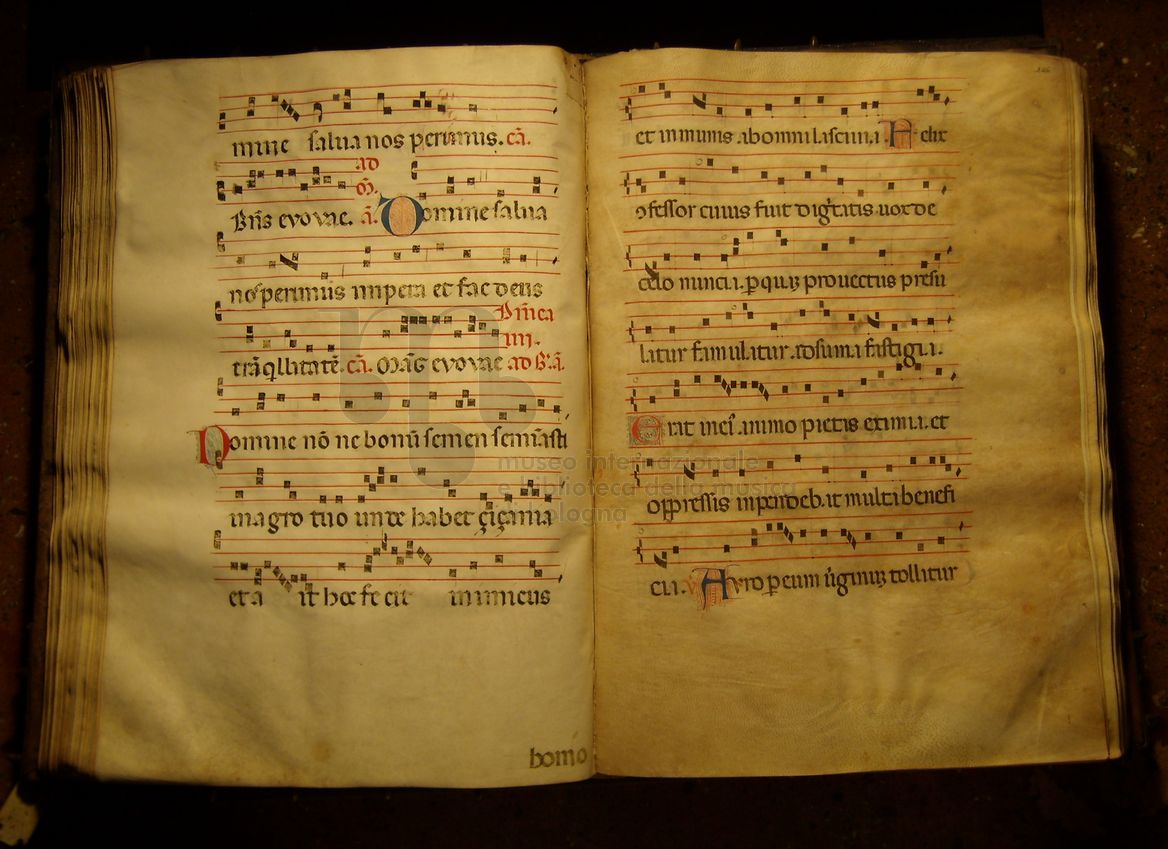 mine salua nos perimus. cā.
ad
ō.
Bn̄s evovae. ā. Domine salua
nos perimus impera et fac deus
Dn̄ica
iiii.
trāq̄llitatē. cā. Māḡ evovae ad B. ā.
Domine nō ne bonū semen seminasti
in agro tuo unde habet çiçania
et a it hoc fecit inimicus
bomo
et in munis ab omni lascivi.a Felix
ofessor cuius fuit digtatis vox de
celo nuncia. p quā provectus presu
latur famulatur ad suma fastigi.a.
Erat in ei animo pietas eximia. et
oppressis inpendebat multa benefi
cia. Auro p eum v̄ginis tollitur
museo internazionale
e biblioteca della musica
bologna